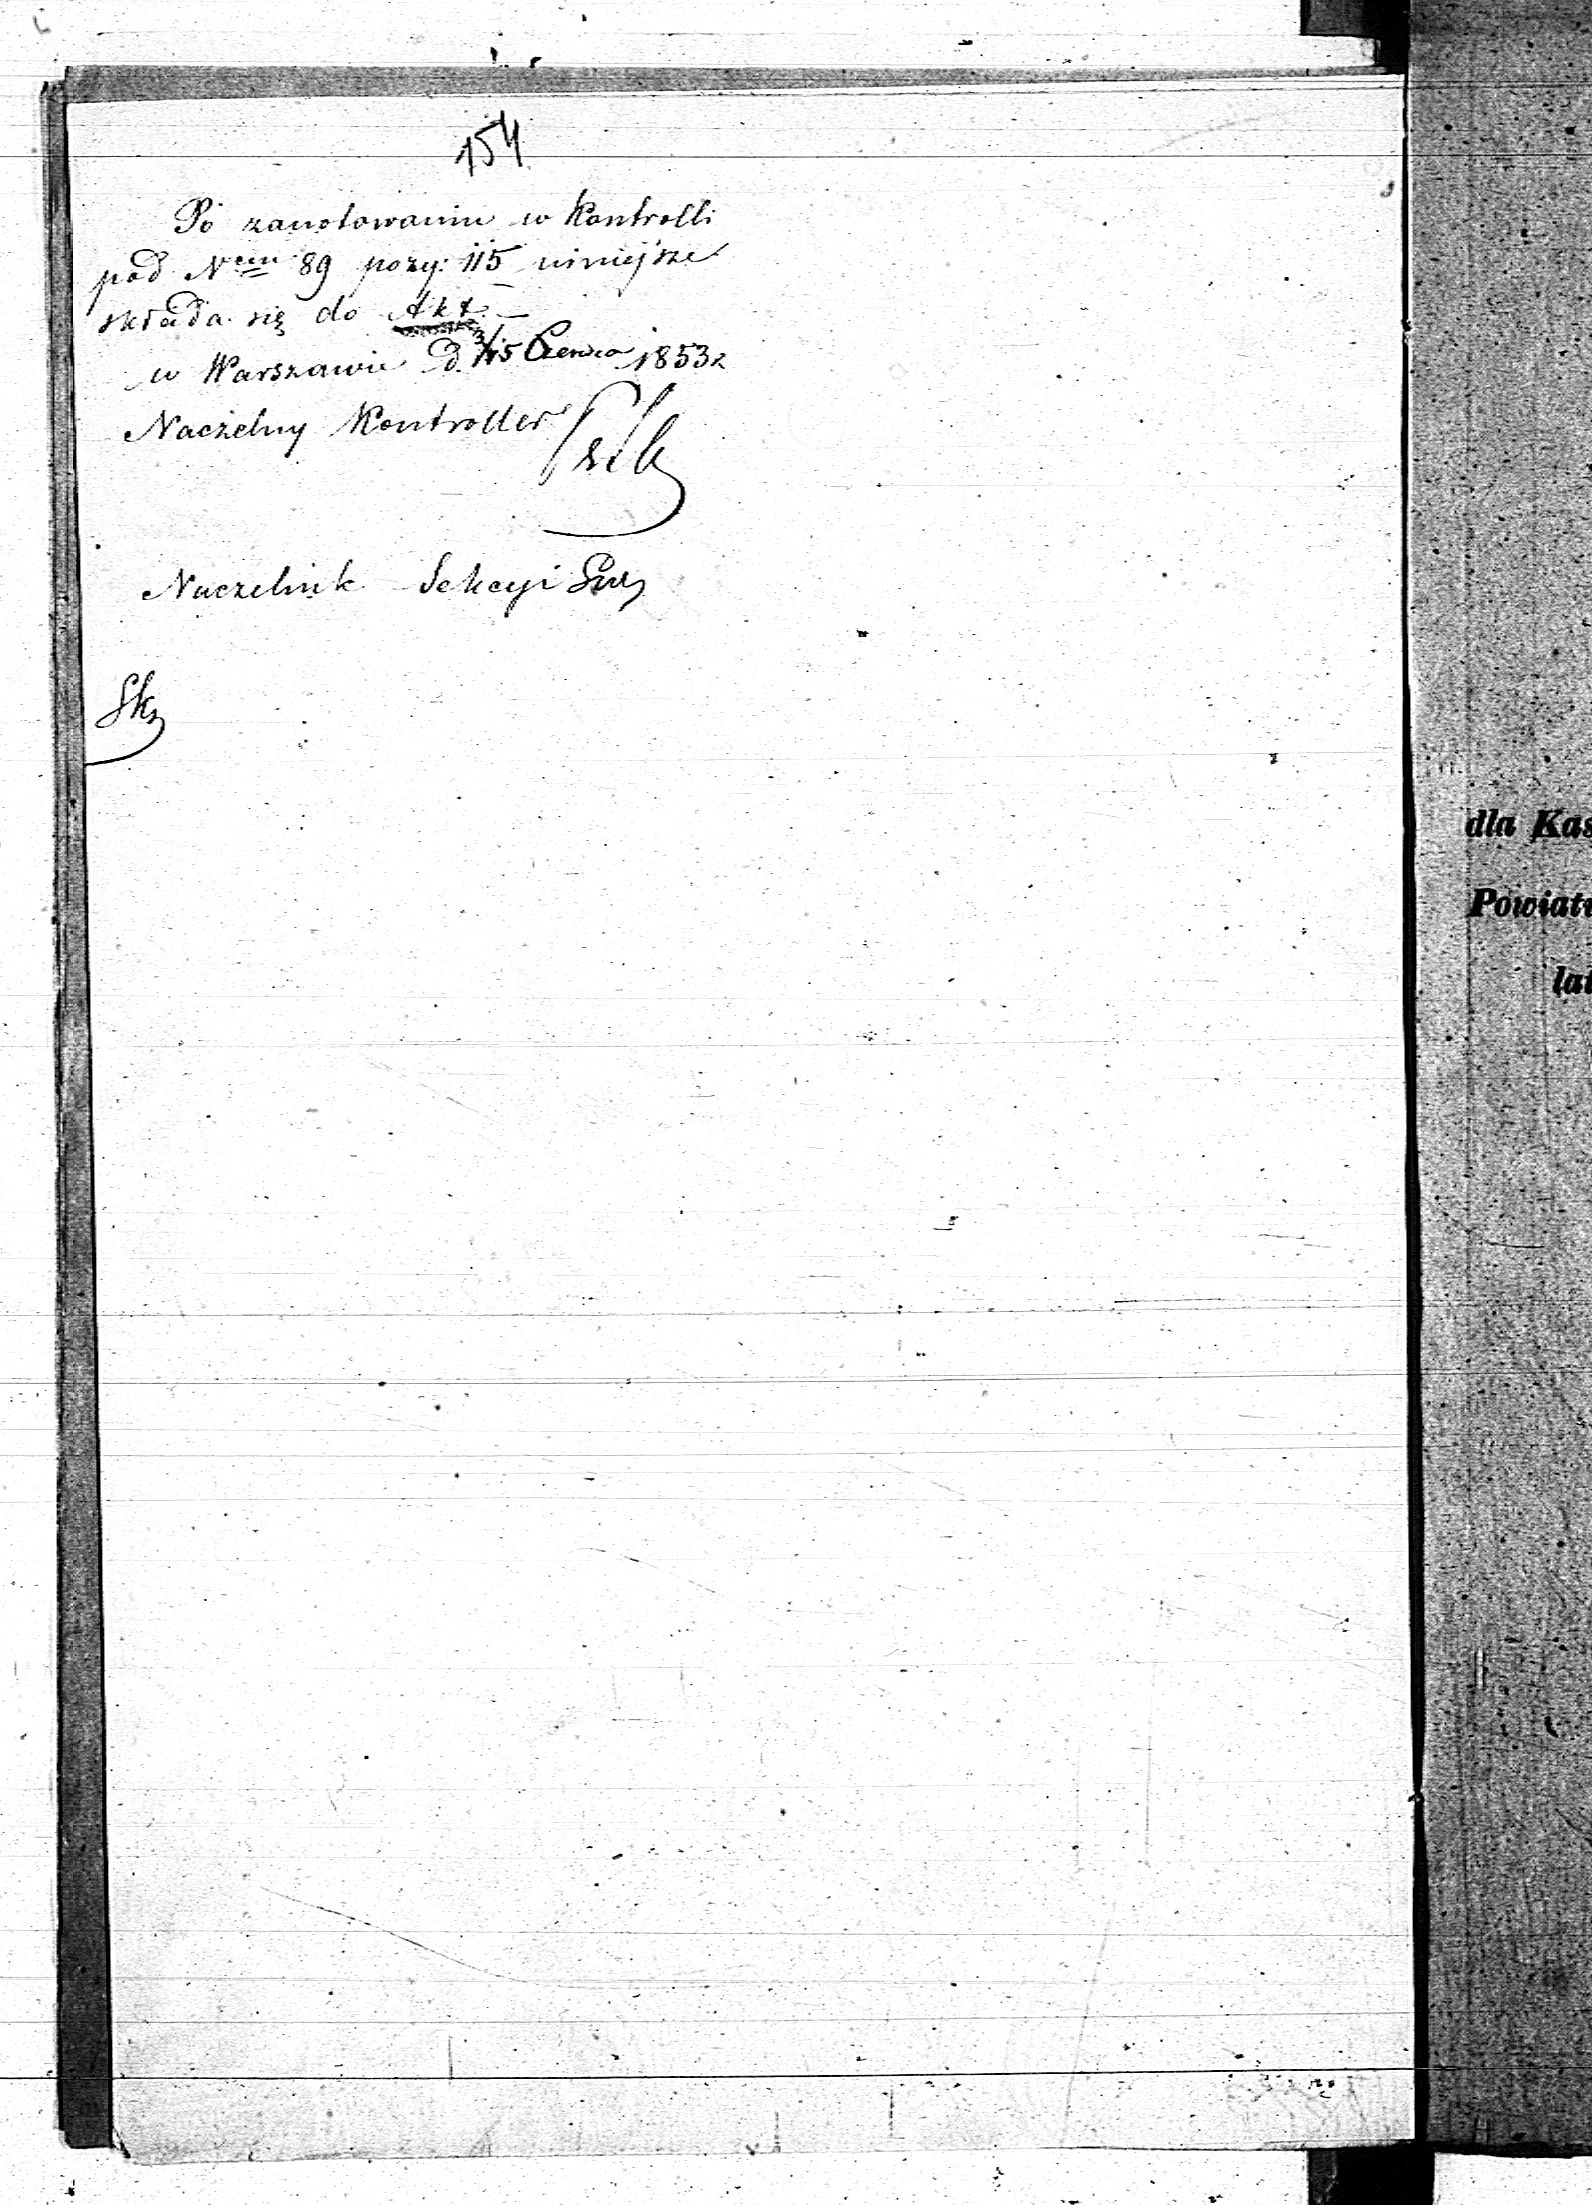 154
Po zanotowaniu w Kontrolli
pod Nem 89 pozy: 115 niniejsze
składa się do Akt.—
w Warszawie d. 3/15 Czerwca 1853 r
Naczelny Kontroller
Naczelnik Sekcyi
dla Kas
Powiatu